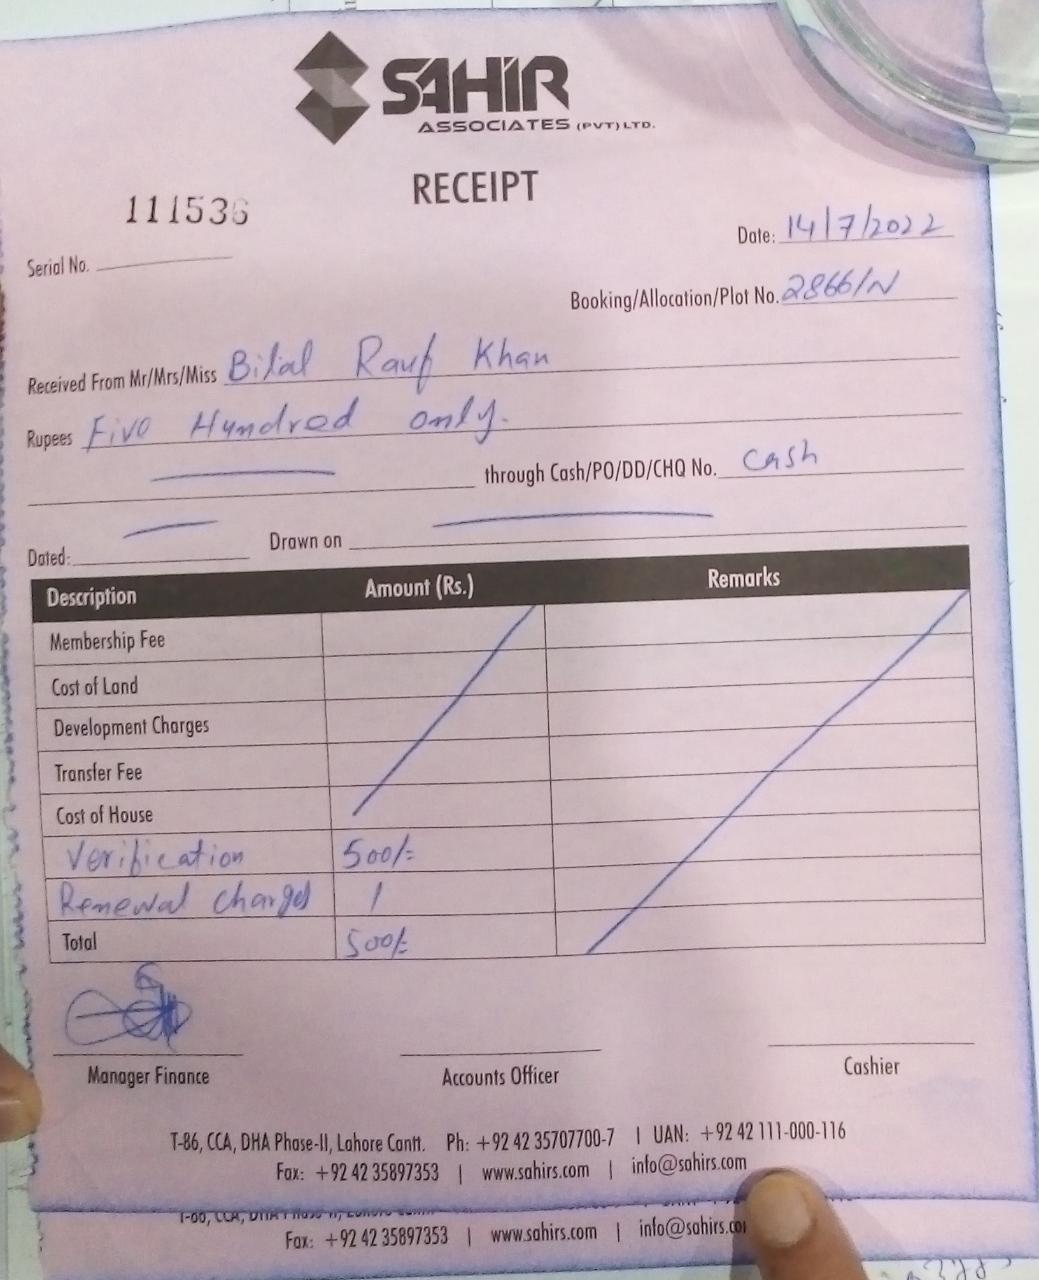 SAHIR
ASSOCIATES (PVT) LTD.
RECEIPT
111536
Serial No.
Date: 14/7/2022
Booking/Allocation/Plot No. 2866/N
Received From Mr/Mrs/Miss Bilal Rauf Khan
Rupees Five Hundred only.
through Cash/PO/DD/CHQ No. cash
Dated: Drawn on
Description Amount (Rs.) Remarks
Membership Fee
Cost of Land
Development Charges
Transfer Fee
Cost of House
Verification 500/=
Renewal Charges /
Total 500/=
Manager Finance Accounts Officer Cashier
T-86, CCA, DHA Phase-II, Lahore Cantt. Ph: +92 42 35707700-7 | UAN: +92 42 111-000-116
Fax: +92 42 35897353 | www.sahirs.com | info@sahirs.com
Fax: +92 42 35897353 | www.sahirs.com |